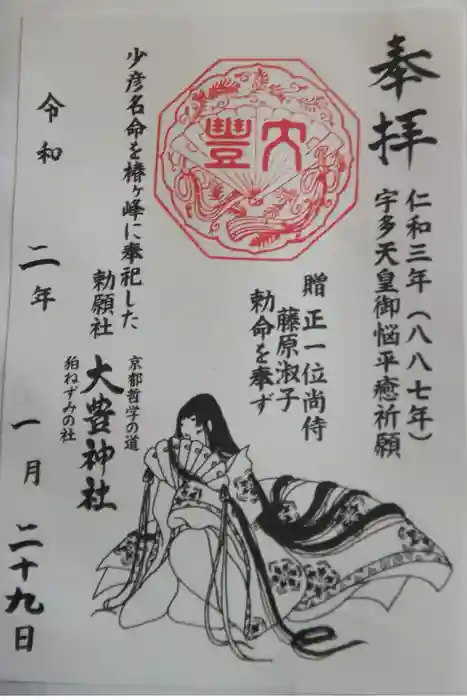 奉拝
仁和三年(八八七年)
宇多天皇御悩平癒祈願
贈 正一位尚侍
藤原淑子
勅命を奉ず
大豐
少彦名命を椿ヶ峰に奉祀した
勅願社
京都哲学の道
大豊神社
狛ねずみの社
令和二年一月二十九日